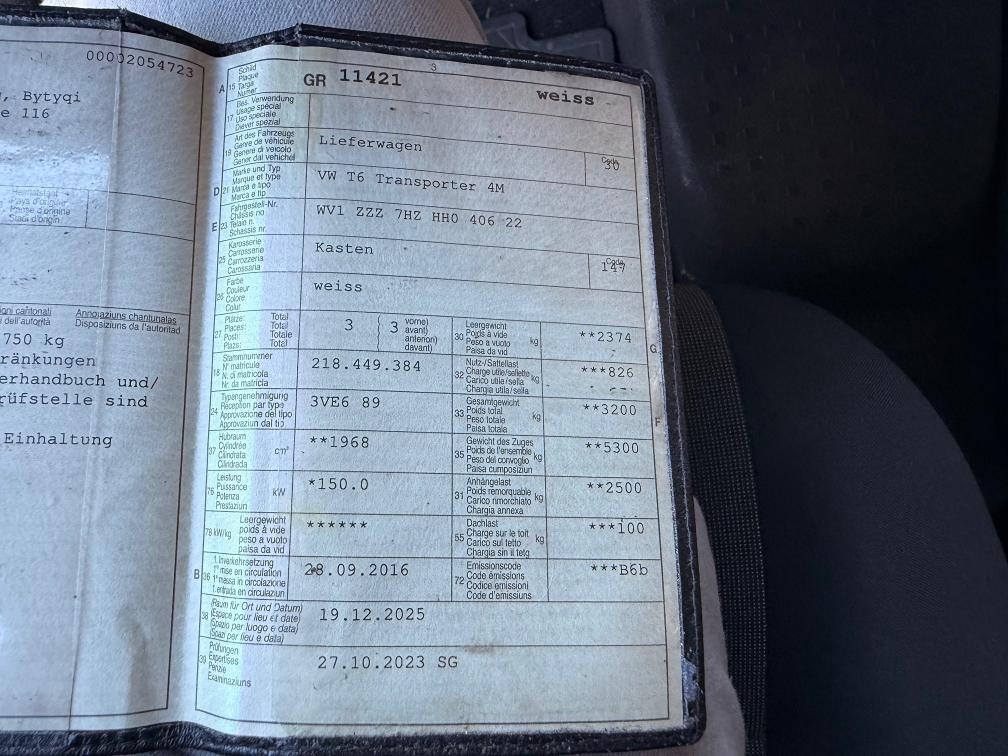 00002054723
, Bytyqi
e 116
Heimatstaat
Pays d'origine
Paese d'origine
Stadi d'origin
oni cantonali
i dell'autorità
Annotaziuns chantunalas
Disposiziuns da l'autoritad
750 kg
ränkungen
erhandbuch und/
rüfstelle sind
Einhaltung
3
A 15 Schild
Plaque
Targa
Numer
GR 11421 weiss
17 Bes. Verwendung
Usage spécial
Uso speciale
Diever spezial
19 Art des Fahrzeugs
Genre de véhicule
Genere di veicolo
Gener dal vehichel
Lieferwagen
Code
30
D 21 Marke und Typ
Marque et type
Marca e tipo
Marca e tip
VW T6 Transporter 4M
E 23 Fahrgestell-Nr.
Châssis no
Telaio n.
Schassis nr.
WV1 ZZZ 7HZ HH0 406 22
25 Karosserie
Carrosserie
Carrozzeria
Carossaria
Kasten
Code
147
26 Farbe
Couleur
Colore
Colur
weiss
27 Plätze: Total
Places: Total
Posti: Totale
Plazs: Total
3
3
vorne)
avant)
anteriori)
davant)
30 Leergewicht
Poids à vide
Peso a vuoto
Paisa da vid
kg
**2374
G
18 Stammnummer
N° matricule
N. di matricola
Nr. da matricla
218.449.384
32 Nutz-/Sattellast
Charge utile/sellette
Carico utile/sella
Chargia utila/sella
kg
***826
24 Typengenehmigung
Réception par type
Approvazione del tipo
Approvaziun dal tip
3VE6 89
33 Gesamtgewicht
Poids total
Peso totale
Paisa totala
kg
**3200
F
37 Hubraum
Cylindrée
Cilindrata
Cilindrada
cm³
**1968
35 Gewicht des Zuges
Poids de l'ensemble
Peso del convoglio
Paisa cumposiziun
kg
**5300
76 Leistung
Puissance
Potenza
Prestaziun
kW
*150.0
31 Anhängelast
Poids remorquable
Carico rimorchiato
Chargia annexa
kg
**2500
78 kW/kg
Leergewicht
poids à vide
peso a vuoto
paisa da vid
******
55 Dachlast
Charge sur le toit
Carico sul tetto
Chargia sin il tetg
kg
***100
B 36 1. Inverkehrsetzung
1re mise en circulation
1a messa in circolazione
1. entrada en circulaziun
28.09.2016
72 Emissionscode
Code émissions
Codice emissioni
Code d'emissiuns
***B6b
38 (Raum für Ort und Datum)
(Espace pour lieu et date)
(Spazio per luogo e data)
(Spazi per lieu e data)
19.12.2025
39 Prüfungen
Expertises
Perizie
Examinaziuns
27.10.2023 SG